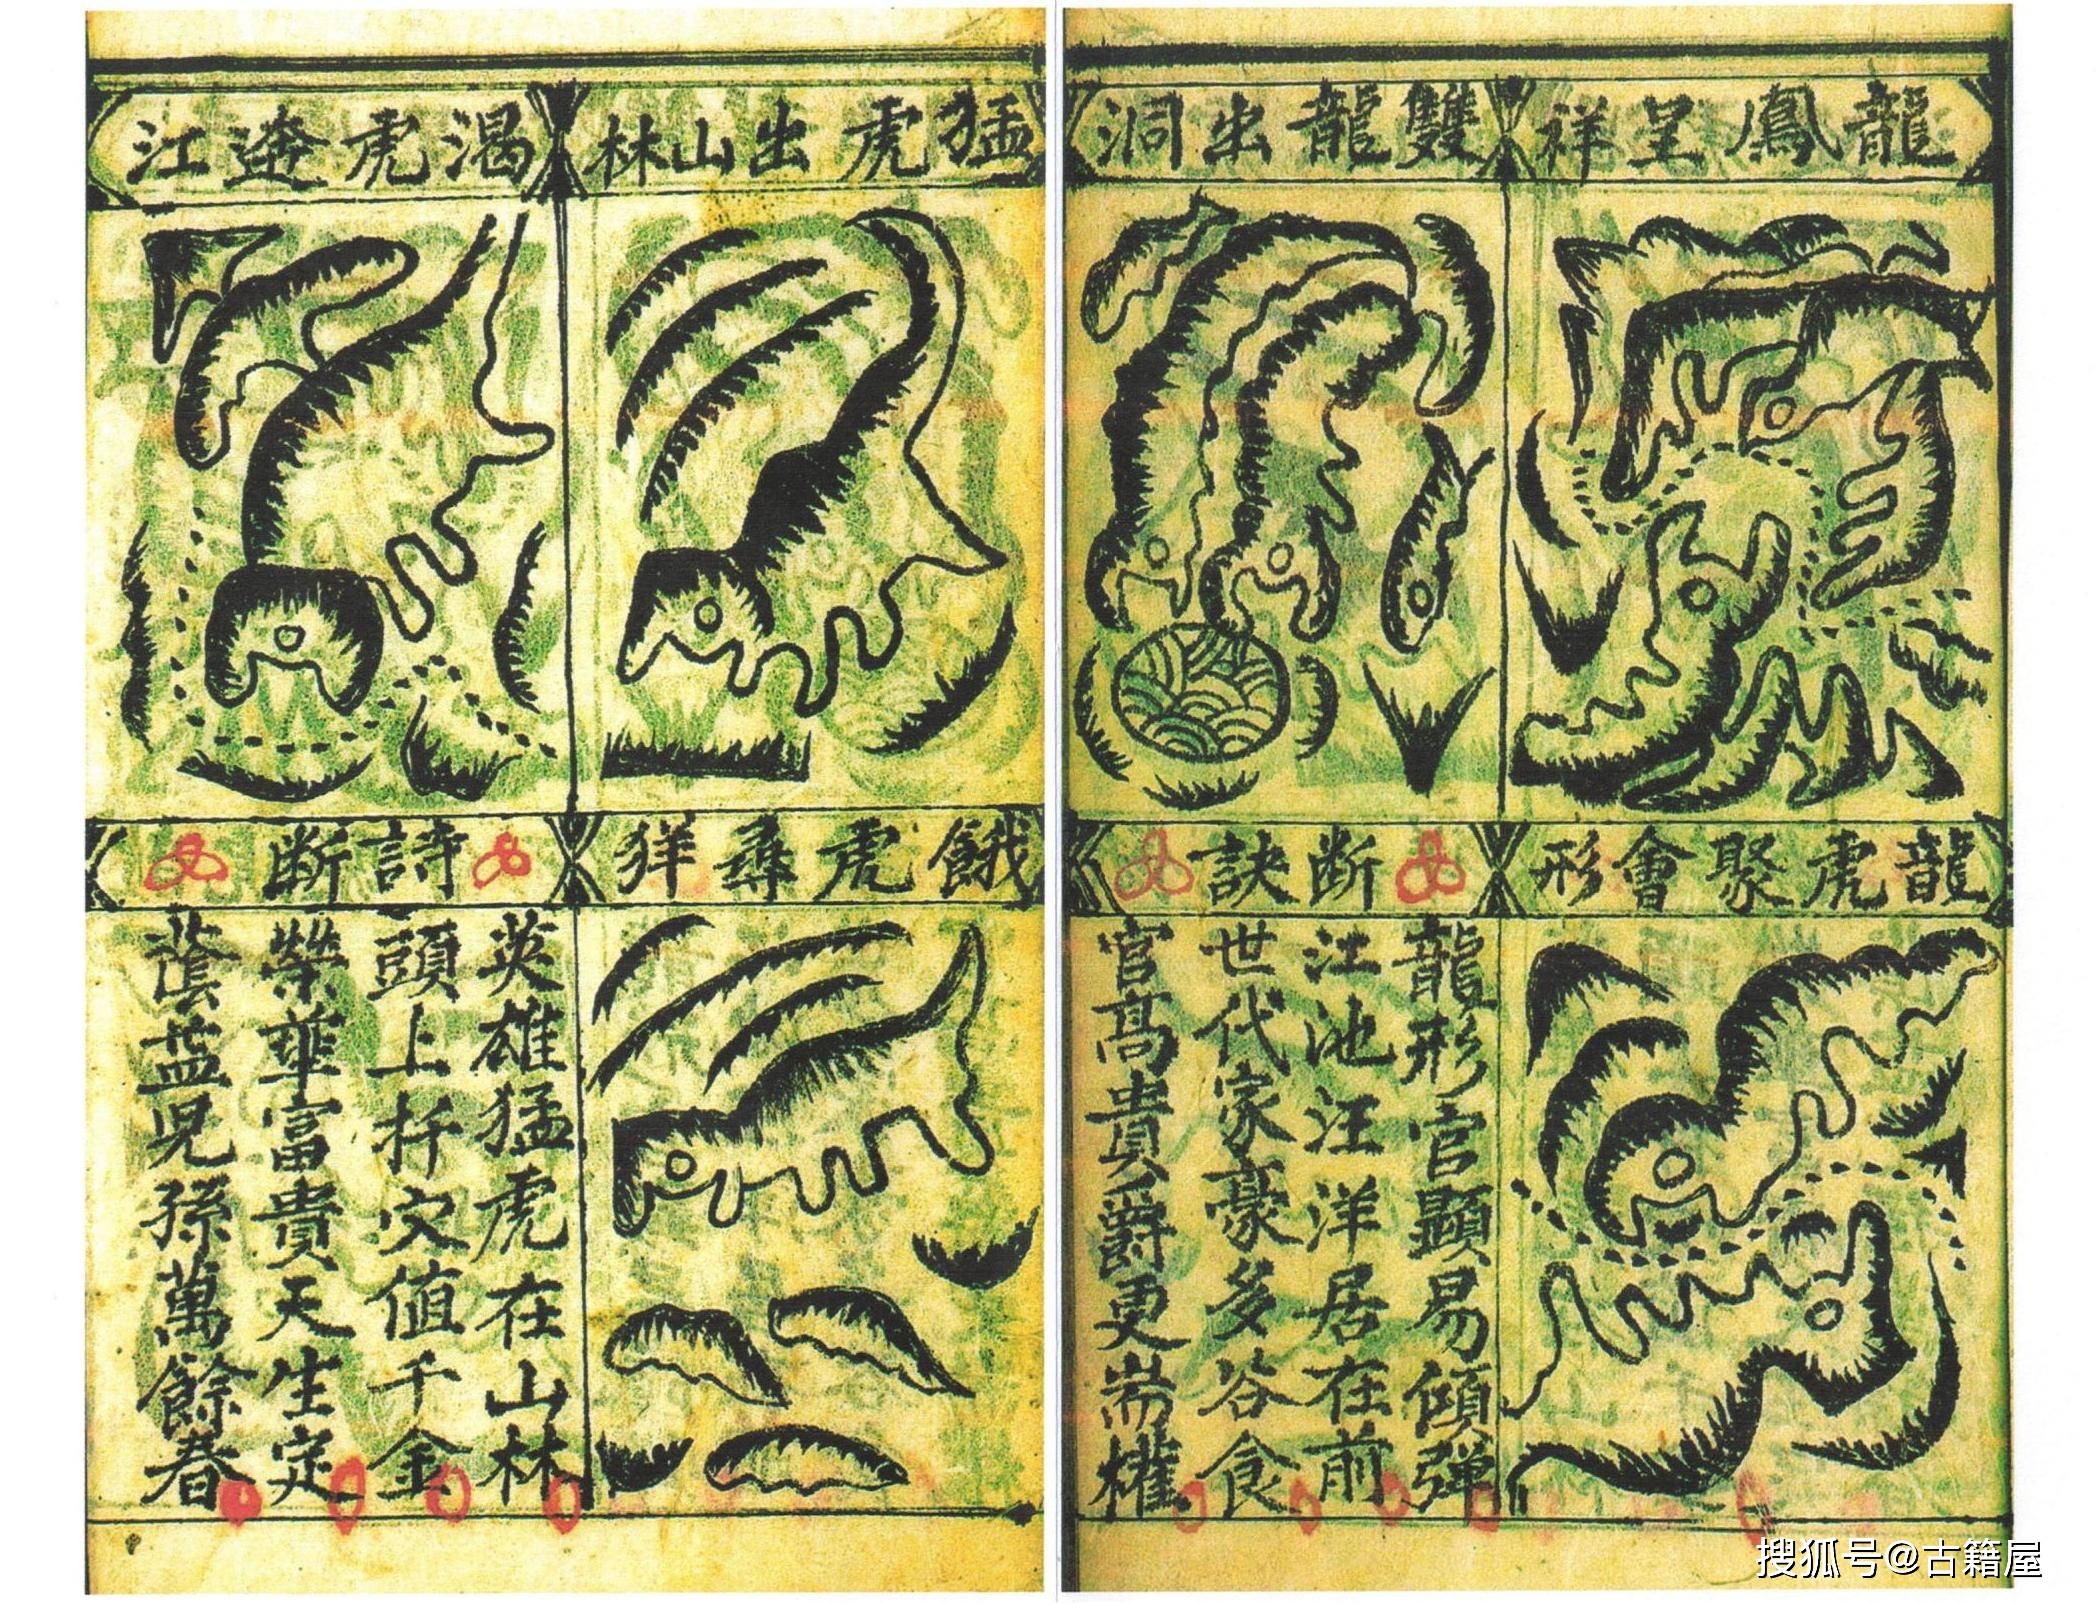 龍鳳呈祥
雙龍出洞
龍虎聚會形
断訣
龍形官顯易傾弹
江池汪洋居在前
世代家豪多谷食
官高貴爵更耑權
猛虎出山林
渴虎逩江
餓虎尋
詩断
英雄猛虎在山林
頭上扦穴值千金
榮華富貴天生定
蔭益児孫萬餘春
搜狐号@古籍屋